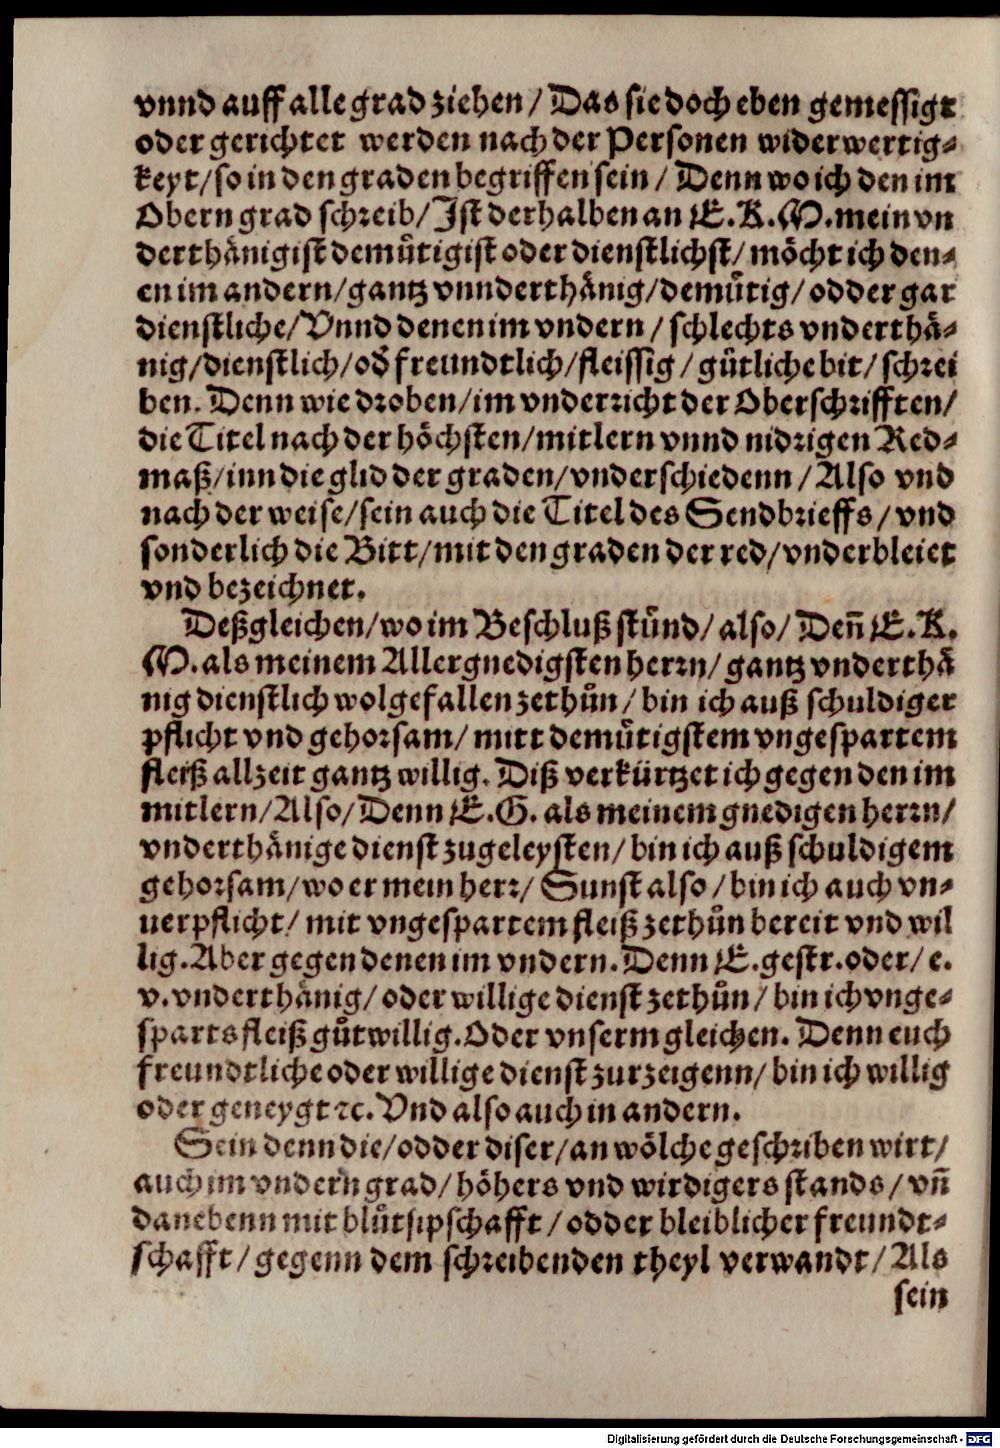 vnnd auff alle grad ziehen / Das sie doch eben gemessigt
oder gerichtet werden nach der Personen widerwertig⸗
keyt / so in den graden begriffen sein / Denn wo ich den im
Obern grad schreib / Ist derhalben an E. K. M. mein vn
derthänigist demuͤtigist oder dienstlichst / möcht ich den⸗
en im andern / gantz vnnderthänig / demuͤtig / odder gar
dienstliche / Vnnd denen im vndern / schlechts vnderthä⸗
nig / dienstlich / od̕ freundtlich / fleissig / guͤtliche bit / schrei
ben. Denn wie droben / im vnderricht der Oberschrifften /
die Titel nach der höchsten / mitlern vnnd nidrigen Red⸗
maß / inn die glid der graden / vnderschiedenn / Also vnd
nach der weise / sein auch die Titel des Sendbrieffs / vnd
sonderlich die Bitt / mit den graden der red / vnderbleiet
vnd bezeichnet.
Deßgleichen / wo im Beschluß stuͤnd / also / Deñ E. K.
M. als meinem Allergnedigsten herrn / gantz vnderthä
nig dienstlich wolgefallen zethuͤn / bin ich auß schuldiger
pflicht vnd gehorsam / mitt demuͤtigstem vngespartem
fleiß allzeit gantz willig. Diß verkürtzet ich gegen den im
mitlern / Also / Denn E. G. als meinem gnedigen herrn /
vnderthänige dienst zugeleysten / bin ich auß schuldigem
gehorsam / wo er mein herr / Sunst also / bin ich auch vn⸗
uerpflicht / mit vngespartem fleiß zethuͤn bereit vnd wil
lig. Aber gegen denen im vndern. Denn E. gestr. oder / e.
v. vnderthänig / oder willige dienst zethuͤn / bin ich vnge⸗
sparts fleiß guͤtwillig. Oder vnserm gleichen. Denn euch
freundtliche oder willige dienst zurzeigenn / bin ich willig
oder geneygt ꝛc. Vnd also auch in andern.
Sein denn die / odder diser / an wölche geschriben wirt /
auch im vndern grad / höhers vnd wirdigers stands / vñ
danebenn mit bluͤtsipschafft / odder bleiblicher freundt⸗
schafft / gegenn dem schreibenden theyl verwandt / Als
sein
Digitalisierung gefördert durch die Deutsche Forschungsgemeinschaft - DFG